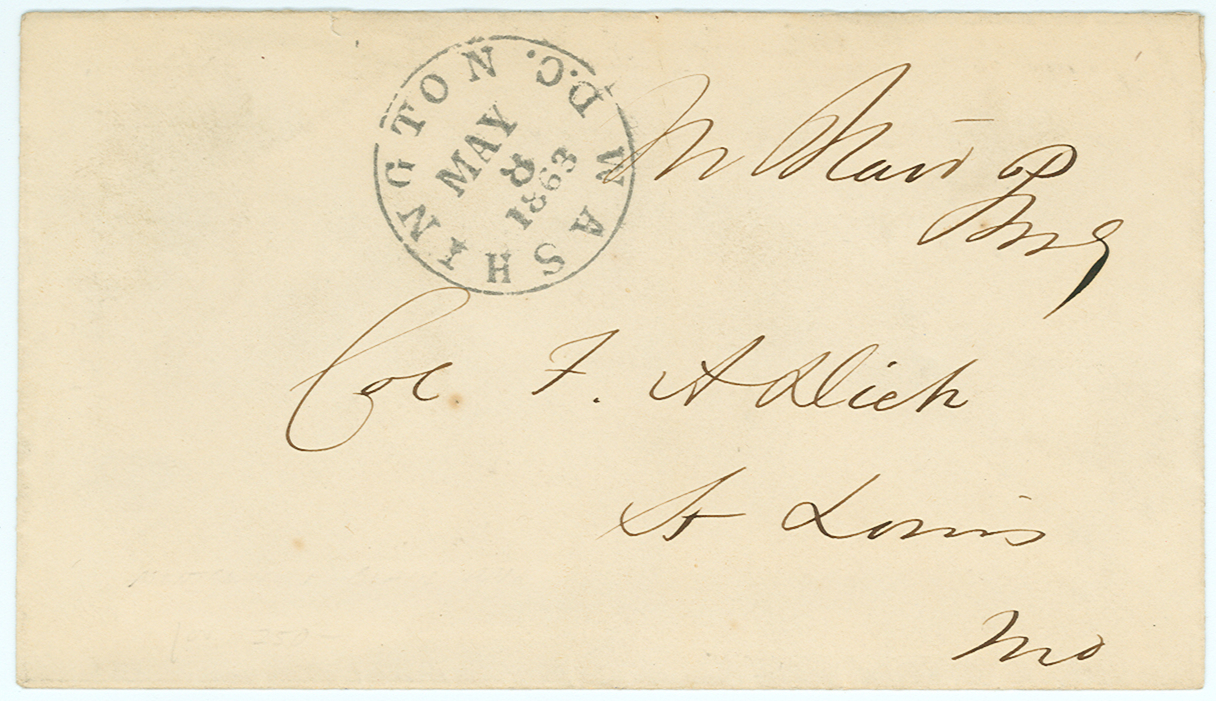 WASHINGTON D.C.
MAY
8
1863
M Blair P
M G
Col. F. A Dick
St Louis
Mo